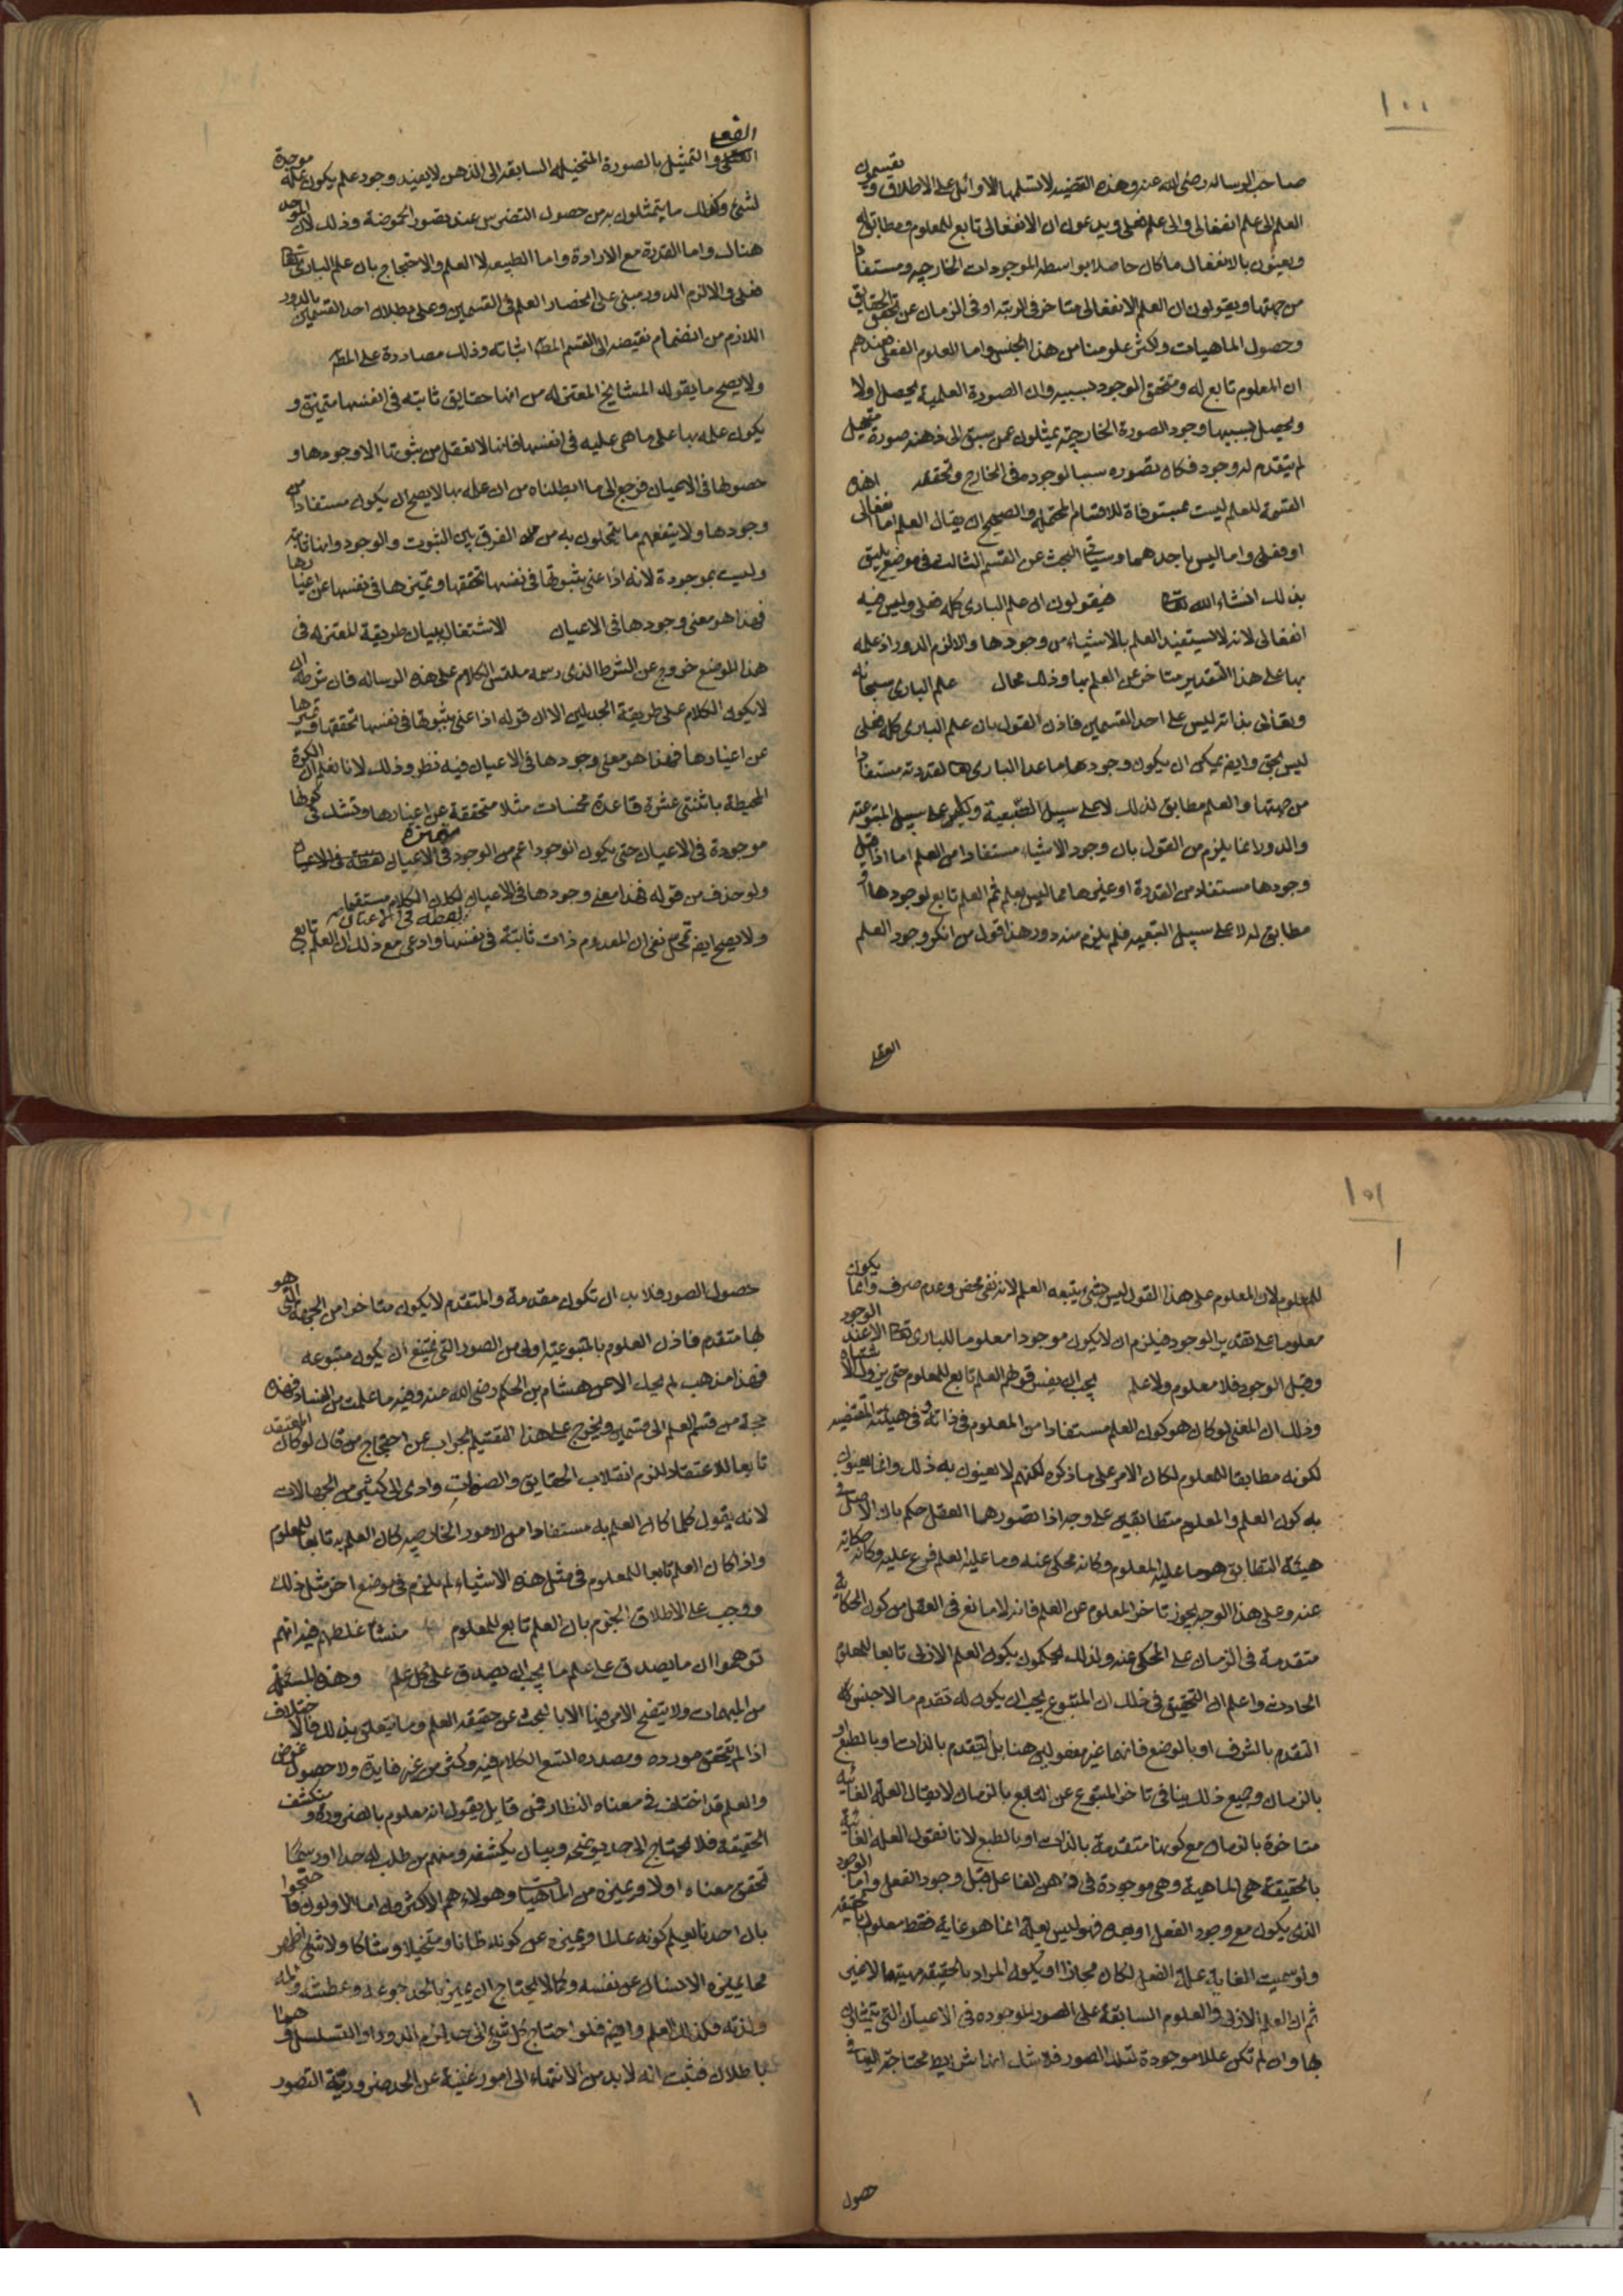 ١٠٠
صاحب الرساله رضى الله عنه وهذه القضيه لا تسلمها الاوائل على الاطلاق ويقسمون
العلم الى علم انفعالى والى علم فعلى ويدعون ان الانفعالى تابع للمعلوم ومطابق له
ويعنون بالانفعال ما كان حاصلا بواسطه الموجودات الخارجيه ومستفادا
من جهتها ويقولون ان العلم الانفعالى متاخر فى الرتبه او فى الزمان عن تحقق الحقايق
وحصول الماهيات واكثر علومنا من هذا الجنس واما العلوم الفعلى فعندهم
ان المعلوم تابع له ومتحقق الوجود بسببه وان الصورة العلمية يحصل اولا
ويحصل بسببها وجود الصورة الخارجيه يمثلون عمن سبق الى ذهنه صورة متخيل
لم يتقدم له وجود فكان تصوره سببا لوجوده فى الخارج وتحققه هذه
القسمة للعلم ليست بمستوفاة للاقسام المحتمله والصحيح ان يقال العلم اما انفعالى
او فعلى واما ليس باحدهما وسياتى البحث عن القسم الثالث فى موضع يليق
بذلك انشاء الله تعالى فيقولون ان علم البارى كله فعلى وليس فيه
انفعالى لانه لا يستفيد العلم بالاشياء من وجودها والا لزم الدور اذ علمه
بها على هذا التقدير متاخر عن العلم بها وذلك محال علم البارى سبحانه
وتعالى بذاته ليس على احد القسمين فاذن القول بان علم البارى كله فعلى
ليس بحق وايضا يمكن ان يكون وجودها ما عدا البارى تعالى لقدرته مستفادا
من جهتها والعلم مطابق لذلك لا على سبيل التبعية ولا على سبيل المتبوعيه
والدور انما يلزم من القول بان وجود الاشياء مستفادا من العلم اما اذا قيل
وجودها مستفاد من القدرة او غيرها مما ليس بعلم ثم العلم تابع لوجودها او
مطابق له لا على سبيل التبعيه فلم يلزم منه دور هذا قول من انكر وجود العلم
العقلى
الفعلى
والتمثيل بالصورة المتخيله السابقه الى الذهن لا يفيد وجود علم يكون علة موجدة
لشئ وكذلك ما يتمثلون به من حصول التضرس عند تصور الحموضة وذلك لان الموجد
هناك واما القدرة مع الارادة واما الطبيعه لا العلم والاحتجاج بان علم البارى تعالى
فعلى والا لزم الدور مبنى على انحصار العلم فى القسمين وعلى بطلان احد القسمين بالدور
اللازم من انضمام نقيضه الى القسم المط اثباته وذلك مصادرة على المط
ولا يصح ما يقوله المشايخ المعتزله من انها حقايق ثابته فى انفسها متميزة و
يكون علمه بها على ما هى عليه فى انفسها فاننا لا نعقل من ثبوتها الا وجودها و
حصولها فى الاعيان فرجع الى ما ابطلناه من ان علمه بها لا يصح ان يكون مستفادا من
وجودها ولا ينفعهم ما يتمحلون به من الفرق بين الثبوت والوجود وانها ثابته
وليست بموجودة لانه اذا عنى بثبوتها فى نفسها تحققها وتميزها فى نفسها عن اغيارها
فهذا هو معنى وجودها فى الاعيان الاشتغال ببيان طريقة المعتزله فى
هذا الموضع خروج عن الشرط الذى رسمه ملتمس الكلام على هذه الرساله فان شرطه ان
لا يكون الكلام على طريقة الجدليين الا ان قوله اذا عنى بثبوتها فى نفسها تحققها وتميزها
عن اغيارها فهذا هو معنى وجودها فى الاعيان فيه نظر وذلك لانا نعلم ان الكرة
المحيطة باثنتى عشرة قاعدة مخمسات مثلا متحققة متميزة عن اغيارها ونشك فى كونها
موجودة فى الاعيان حتى يكون الوجود اعم من الوجود فى الاعيان
ولو حذف من قوله فهذا معنى وجودها فى الاعيان لفظة فى الاعيان لكان الكلام مستقيما
ولا يصح ايضا تمحل من نفى ان المعدوم ذات ثابتة فى نفسها وادعى مع ذلك ان العلم تابع
١٠١
للمعلوم لان المعلوم على هذا القول ليس بشئ يتبعه العلم لانه نفى محض وعدم صرف وانما يكون
معلوما على تقدير الوجود فيلزم ان لا يكون موجودا معلوما للبارى تعالى الا عند الوجود
وقبل الوجود فلا معلوم ولا علم يجب ان يفسر قولهم العلم تابع للمعلوم حتى يزول الاشتباه
وذلك ان المعنى لو كان هو كون العلم مستفادا من المعلوم فى ذاته وفى هيئته المقتضيه
لكونه مطابقا للمعلوم لكان الامر على ما ذكره لكنهم لا يعنون به ذلك وانما يعنون
به كون العلم والمعلوم متطابقين على وجه اذا تصورهما العقل حكم بان الاصل فى
هيئة التطابق هو ما عليه المعلوم وكانه محكى عنه وما عليه العلم فرع عليه وكانه حكاية
عنه وعلى هذا الوجه يجوز تاخر المعلوم عن العلم فانه لا مانع فى العقل من كون الحكاية
متقدمة فى الزمان على المحكى عنه ولذلك يحكمون بكون العلم الازلى تابعا للمعلوم
الحادث واعلم ان التحقيق فى ذلك ان المتبوع يجب ان يكون له تقدم ما لا جنس كله
التقدم بالشرف او بالوضع فانهما غير معقولين هنا بل التقدم بالذات او بالطبع او
بالزمان وجميع ذلك ينافى تاخر المتبوع عن التابع بالزمان لا يقال العلة الغائية
متاخرة بالزمان مع كونها متقدمة بالذات او بالطبع لانا نقول العلة الغائية
بالحقيقة هى الماهية وهى موجودة فى ذهن الفاعل قبل وجود الفعل واما الوجود
الذى يكون مع وجود الفعل او بعده فهو ليس بعلة انما هو غاية فقط معلول بالحقيقه
ولو سميت الغاية علة الفعل لكان مجازا او يكون المراد بالحقيقه مهيتها لا غير
ثم ان العلم الازلى والعلوم السابقة على الصور الموجوده فى الاعيان التى يتمثل
بها وان لم تكن عللا موجودة لتلك الصور فلا شك انها شرايط محتاجة اليها فى
حصول
حصول الصور فلا بد ان تكون مقدمة والمتقدم لا يكون متاخرا من الجهة التى هو
بها متقدم فاذن العلوم بالمتبوعية اولى من الصور التى يمتنع ان يكون متبوعه
فهذا مذهب لم يحك الا عن هشام بن الحكم رضى الله عنه وفيه ما علمت من الفساد فهذه
حجة من قسم العلم الى قسمين ويخرج على هذا التقسيم الجواب عن احتجاج من قال لو كان المعتقد
تابعا للاعتقاد للزم انقلاب الحقايق والصفات وادى الى كثير من الجهالات
لانه يقول كلما كان العلم به مستفادا من الامور الخارجيه كان العلم به تابعا للمعلوم
واذا كان العلم تابعا للمعلوم فى مثل هذه الاشياء لم يلزم فى موضع اخر مثل ذلك
ووجب على الاطلاق الجزم بان العلم تابع للمعلوم منشأ غلطهم فيه انهم
توهموا ان ما يصدق على علم ما يجب ان يصدق على كل علم وهذه المسئلة
من المهمات ولا يتضح الامر فيها الا بالبحث عن حقيقة العلم وما يتعلق بذلك فالاختلاف
اذا لم يتحقق مورده ومصدره اتسع الكلام فيه وكثر من غير فايدة ولا حصول غرض
والعلم قد اختلف فى معناه النظار فمن قايل يقول انه معلوم بالضرورة ومنكشف
الحقيقة فلا يحتاج الى حد يوضحه وبيان يكشفه ومنهم من طلب له حدا او رسما
تحقق معناه اولا وتميزه من الماهيات وهولاء هم الاكثرون اما الاولون فاحتجوا
بان احدنا يعلم كونه عالما ويميزه عن كونه ظانا ومتخيلا وشاكا ولا شئ اظهر
مما يميزه الانسان عن نفسه وكما لا يحتاج ان يميز بالحد جوعه وعطشه والمه
ولذته فكذلك العلم وايضا فلو احتاج كل شئ الى حد لزم الدور او التسلسل وهما
باطلان فثبت انه لا بد من الانتهاء الى امور غنية عن الحد ضرورية التصور